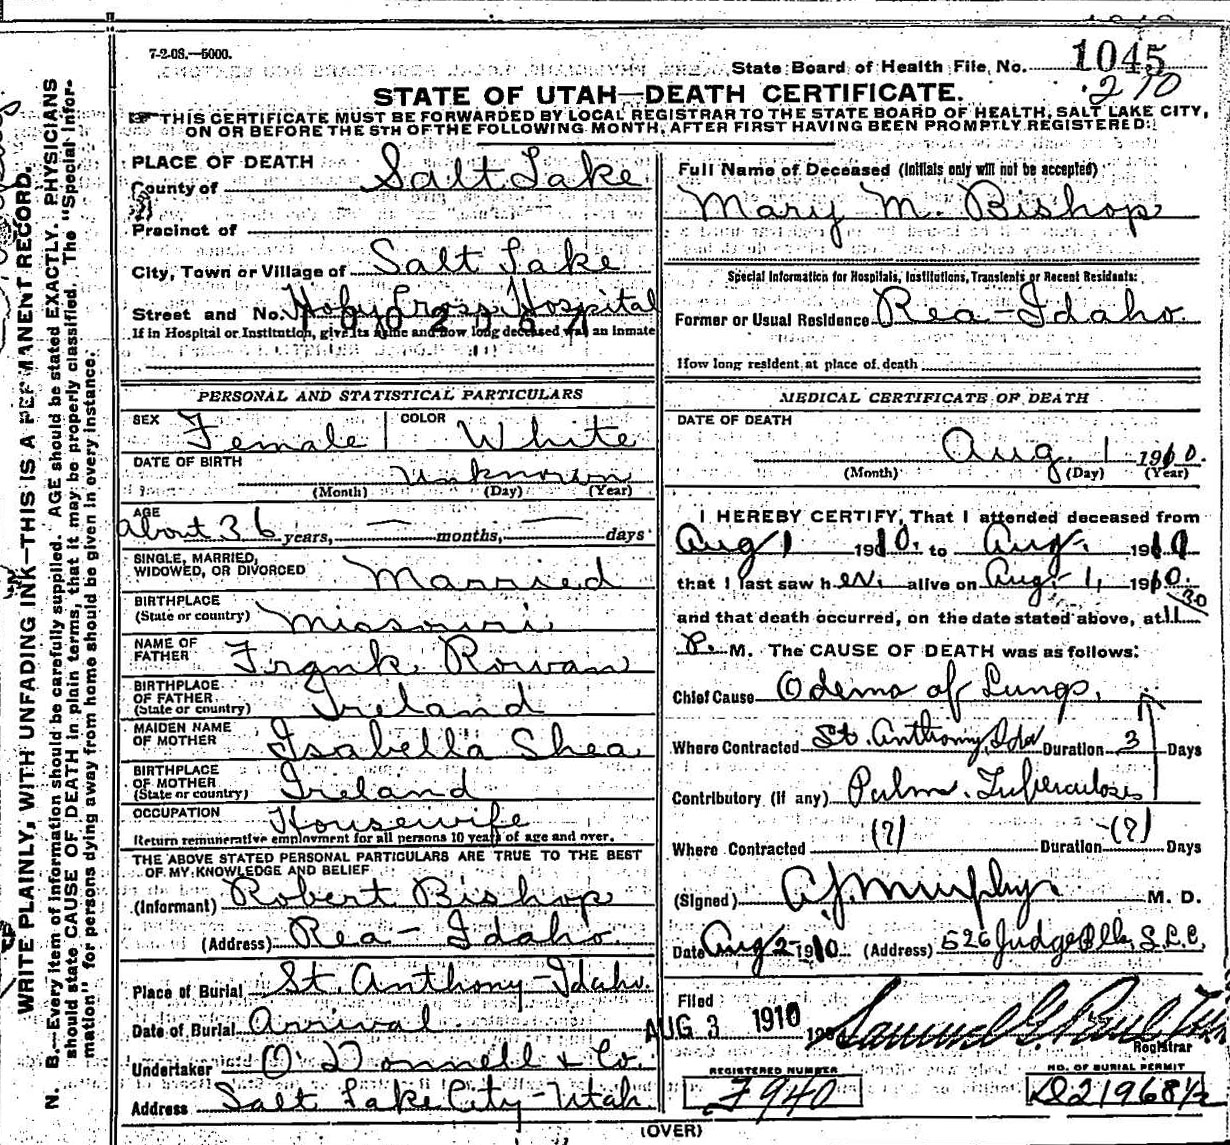 7-2-08.—5000.
State Board of Health File, No. 1045
270
STATE OF UTAH—DEATH CERTIFICATE.
THIS CERTIFICATE MUST BE FORWARDED BY LOCAL REGISTRAR TO THE STATE BOARD OF HEALTH, SALT LAKE CITY,
ON OR BEFORE THE 5TH OF THE FOLLOWING MONTH, AFTER FIRST HAVING BEEN PROMPTLY REGISTERED.
PLACE OF DEATH
County of Salt Lake
Precinct of
City, Town or Village of Salt Lake
Street and No. Holy Cross Hospital
If in Hospital or Institution, give its name and how long deceased was an inmate
PERSONAL AND STATISTICAL PARTICULARS
SEX Female COLOR White
DATE OF BIRTH unknown
(Month) (Day) (Year)
AGE
about 36 years, — months, — days
SINGLE, MARRIED,
WIDOWED, OR DIVORCED Married
BIRTHPLACE
(State or country) Missouri
NAME OF
FATHER Frank Rowan
BIRTHPLACE
OF FATHER
(State or country) Ireland
MAIDEN NAME
OF MOTHER Isabella Shea
BIRTHPLACE
OF MOTHER
(State or country) Ireland
OCCUPATION Housewife
Return remunerative employment for all persons 10 years of age and over.
THE ABOVE STATED PERSONAL PARTICULARS ARE TRUE TO THE BEST
OF MY KNOWLEDGE AND BELIEF
(Informant) Robert Bishop
(Address) Rea - Idaho
Place of Burial St. Anthony - Idaho.
Date of Burial Arrival
Undertaker O'Donnell & Co.
Address Salt Lake City - Utah
Full Name of Deceased (Initials only will not be accepted)
Mary M. Bishop
Special Information for Hospitals, Institutions, Transients or Recent Residents:
Former or Usual Residence Rea - Idaho
How long resident at place of death
MEDICAL CERTIFICATE OF DEATH
DATE OF DEATH
Aug. 1 1910.
(Month) (Day) (Year)
I HEREBY CERTIFY, That I attended deceased from
Aug 1 1910. to Aug. 1 1910
that I last saw her alive on Aug. 1, 1910.
and that death occurred, on the date stated above, at 11 30
P. M. The CAUSE OF DEATH was as follows:
Chief Cause Odema of Lungs.
Where Contracted St. Anthony, Ida Duration 3 Days
Contributory (if any) Pulm. Tuberculosis
Where Contracted (?) Duration (?) Days
(Signed) A.J. Murphy M. D.
Date Aug 2 1910 (Address) 526 Judge Bldg S.L.C.
Filed
AUG 3 1910 190 Samuel G. Paul
Registrar
REGISTERED NUMBER
F940
NO. OF BURIAL PERMIT
D21968½
(OVER)
WRITE PLAINLY, WITH UNFADING INK—THIS IS A PERMANENT RECORD.
N. B.—Every item of information should be carefully supplied. AGE should be stated EXACTLY. PHYSICIANS
should state CAUSE OF DEATH in plain terms, that it may be properly classified. The "Special Infor-
mation" for persons dying away from home should be given in every instance.